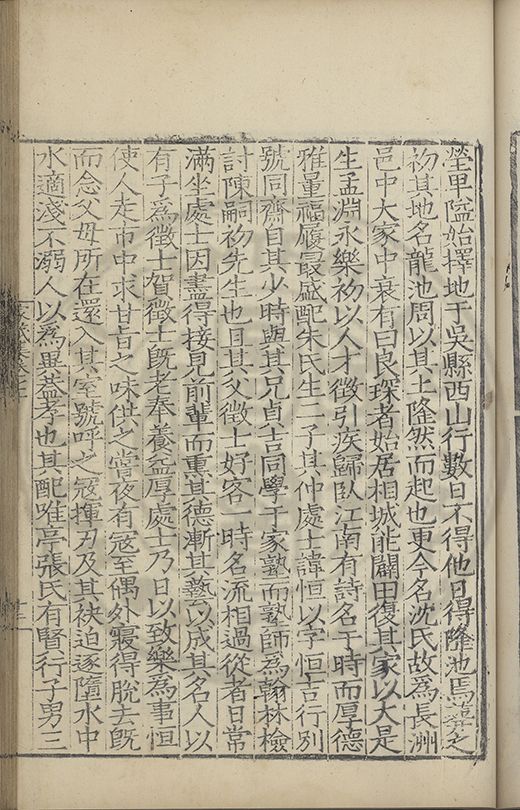 塋卑隘始擇地于吳縣西山行數日不得他日得隆池焉喜之
初其地名龍池周以其土隆然而起也更今名沈氏故為長洲
邑中大家中衰有曰良琛者始居相城能闢田復其家以大是
生孟淵永樂初以人才徵引疾歸臥江南有詩名于時而厚德
雅量福履最盛配朱氏生二子其仲處士諱恒以字恒吉行別
號同齋自其少時與其兄貞吉同學于家塾而塾師為翰林檢
討陳嗣初先生也且其父徵士好客一時名流相過從者日常
滿坐處士因盡得接見前輩而熏其德漸其藝以成其名人以
有子為徵士賀徵士旣老奉養益厚處士乃日以致樂為事恒
使人走市中求甘旨之味供之嘗夜有寇至偶外寢得脫去旣
而念父母所在還入其室號呼之寇揮刃及其袂迫逐墮水中
水適淺不溺人以為異葢孝也其配唯亭張氏有賢行子男三